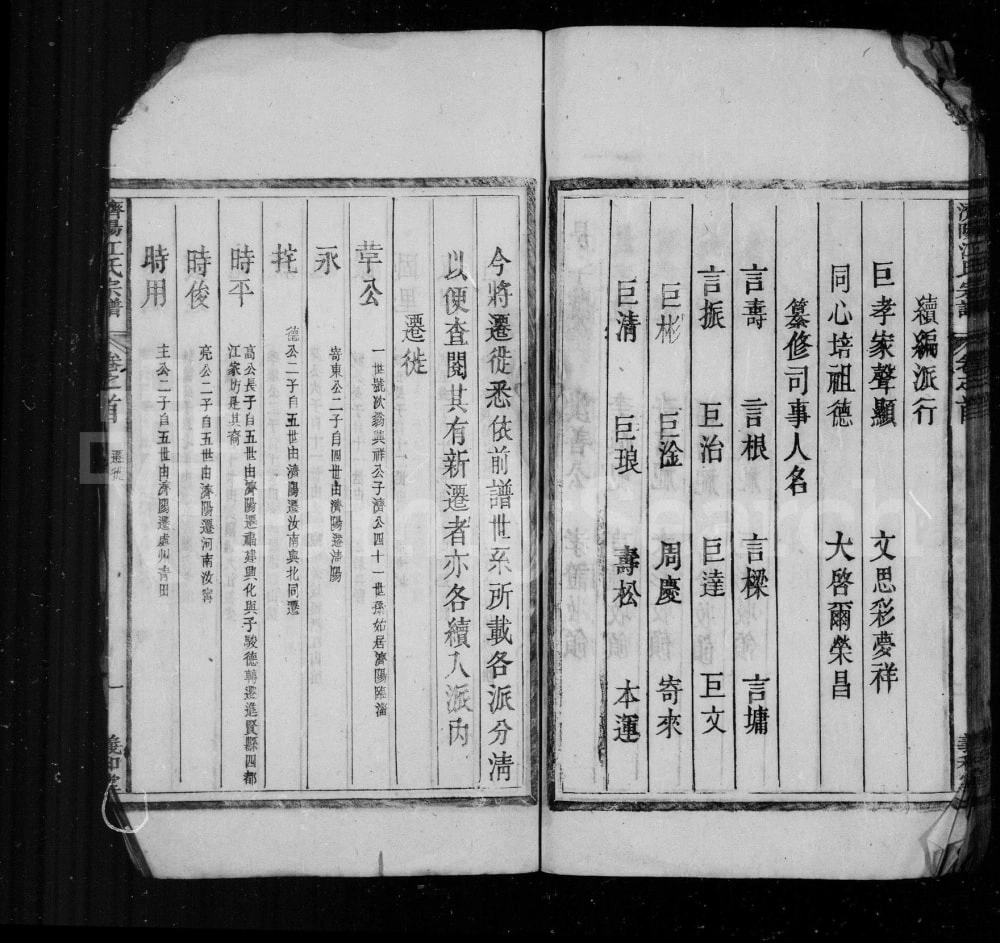 續編派行
巨孝家聲顯 文思彩夢祥
同心培祖德 大啓爾榮昌
纂修司事人名
言壽 言根 言樑 言墉
言振 巨治 巨達 巨文
巨彬 巨淦 周慶 寄來
巨清 巨琅 壽松 本運
今將遷徙悉依前譜世系所載各派分清
以便查閱其有新遷者亦各續入派內
遷徙
苹公 一世號次翁與祥公子濟公四十一世孫始居濟陽臨淄
永 寄東公二子自四世由濟陽遷濟陽
德公二子自五世由濟陽遷汝南與北同遷
時平 高公長子自五世由濟陽遷福建興化與子駿德轉遷進賢縣四都
江家坊是其裔
時俊 亮公二子自五世由濟陽遷河南汝寧
時用 主公二子自五世由濟陽遷處州青田
濟陽江氏宗譜 卷之首 遷徙 一 義和堂